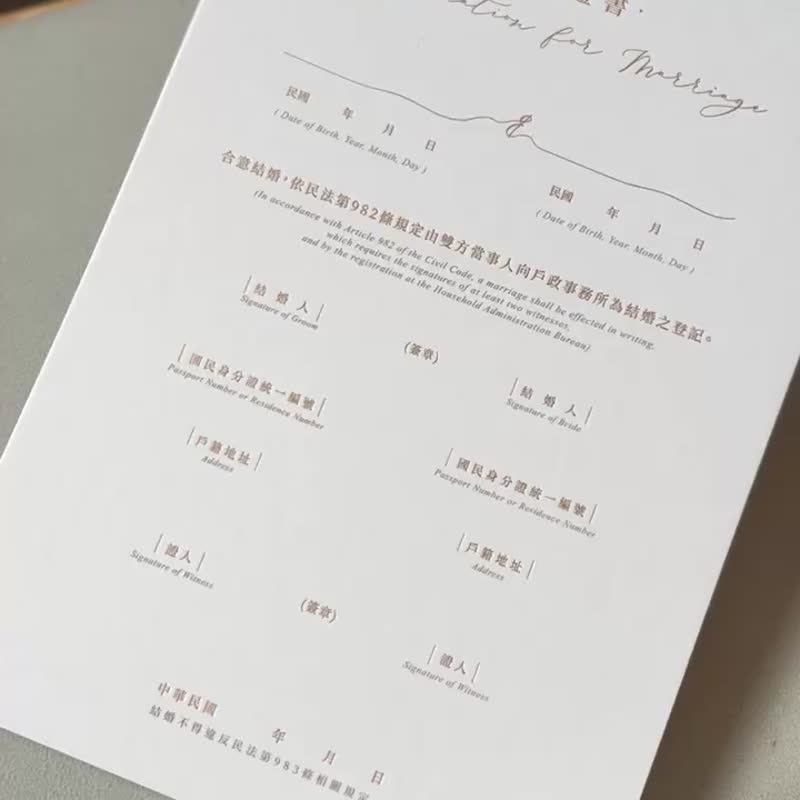 書.
for Marriage
&
民國 年 月 日
( Date of Birth, Year, Month, Day )
民國 年 月 日
( Date of Birth, Year, Month, Day )
合意結婚，依民法第982條規定由雙方當事人向戶政事務所為結婚之登記。
(In accordance with Article 982 of the Civil Code, a marriage shall be effected in writing,
which requires the signatures of at least two witnesses,
and by the registration at the Household Administration Bureau)
|結婚人|
Signature of Groom
(簽章)
|結婚人|
Signature of Bride
|國民身分證統一編號|
Passport Number or Residence Number
|國民身分證統一編號|
Passport Number or Residence Number
|戶籍地址|
Address
|戶籍地址|
Address
|證人|
Signature of Witness
(簽章)
|證人|
Signature of Witness
中華民國 年 月 日
結婚不得違反民法第983條相關規定